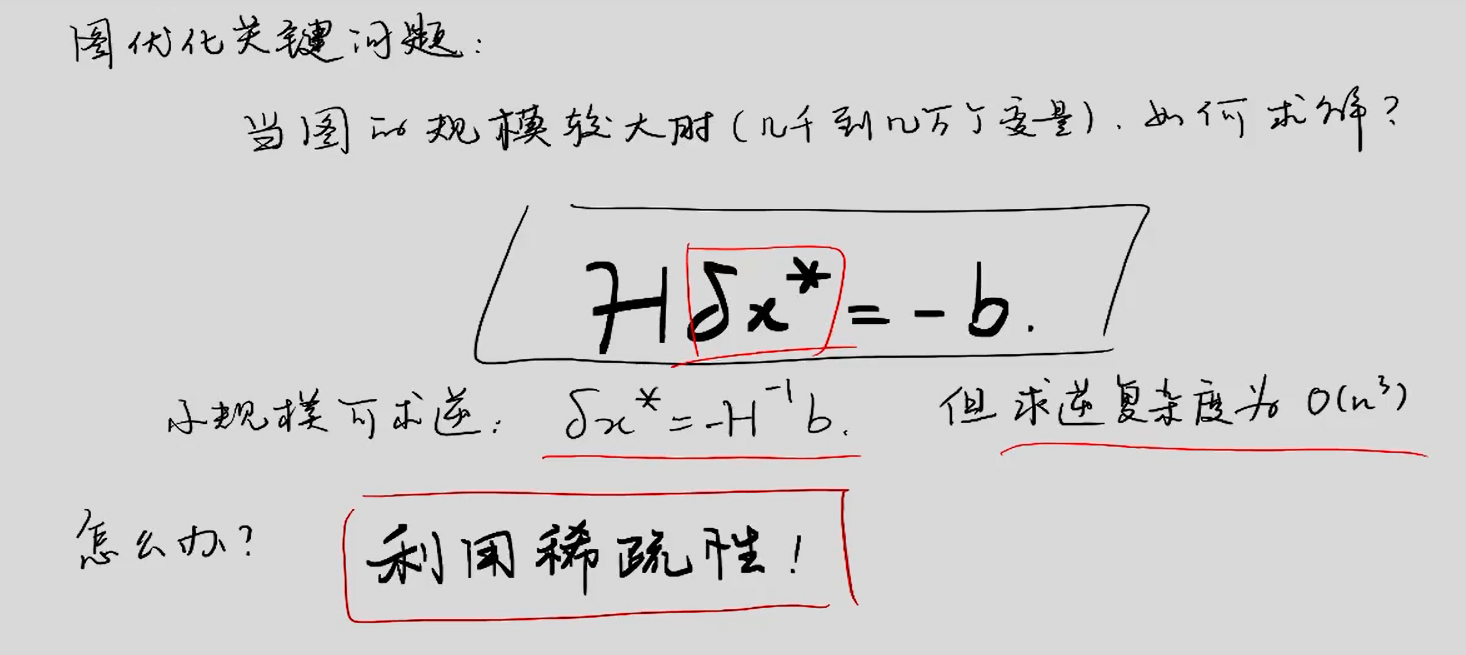 图优化关键问题:
当图的规模较大时(几千到几万个变量).如何求解?
Hδx*=-b.
小规模可求逆: δx*=-H⁻¹b. 但求逆复杂度为 O(n³)
怎么办? 利用稀疏性!